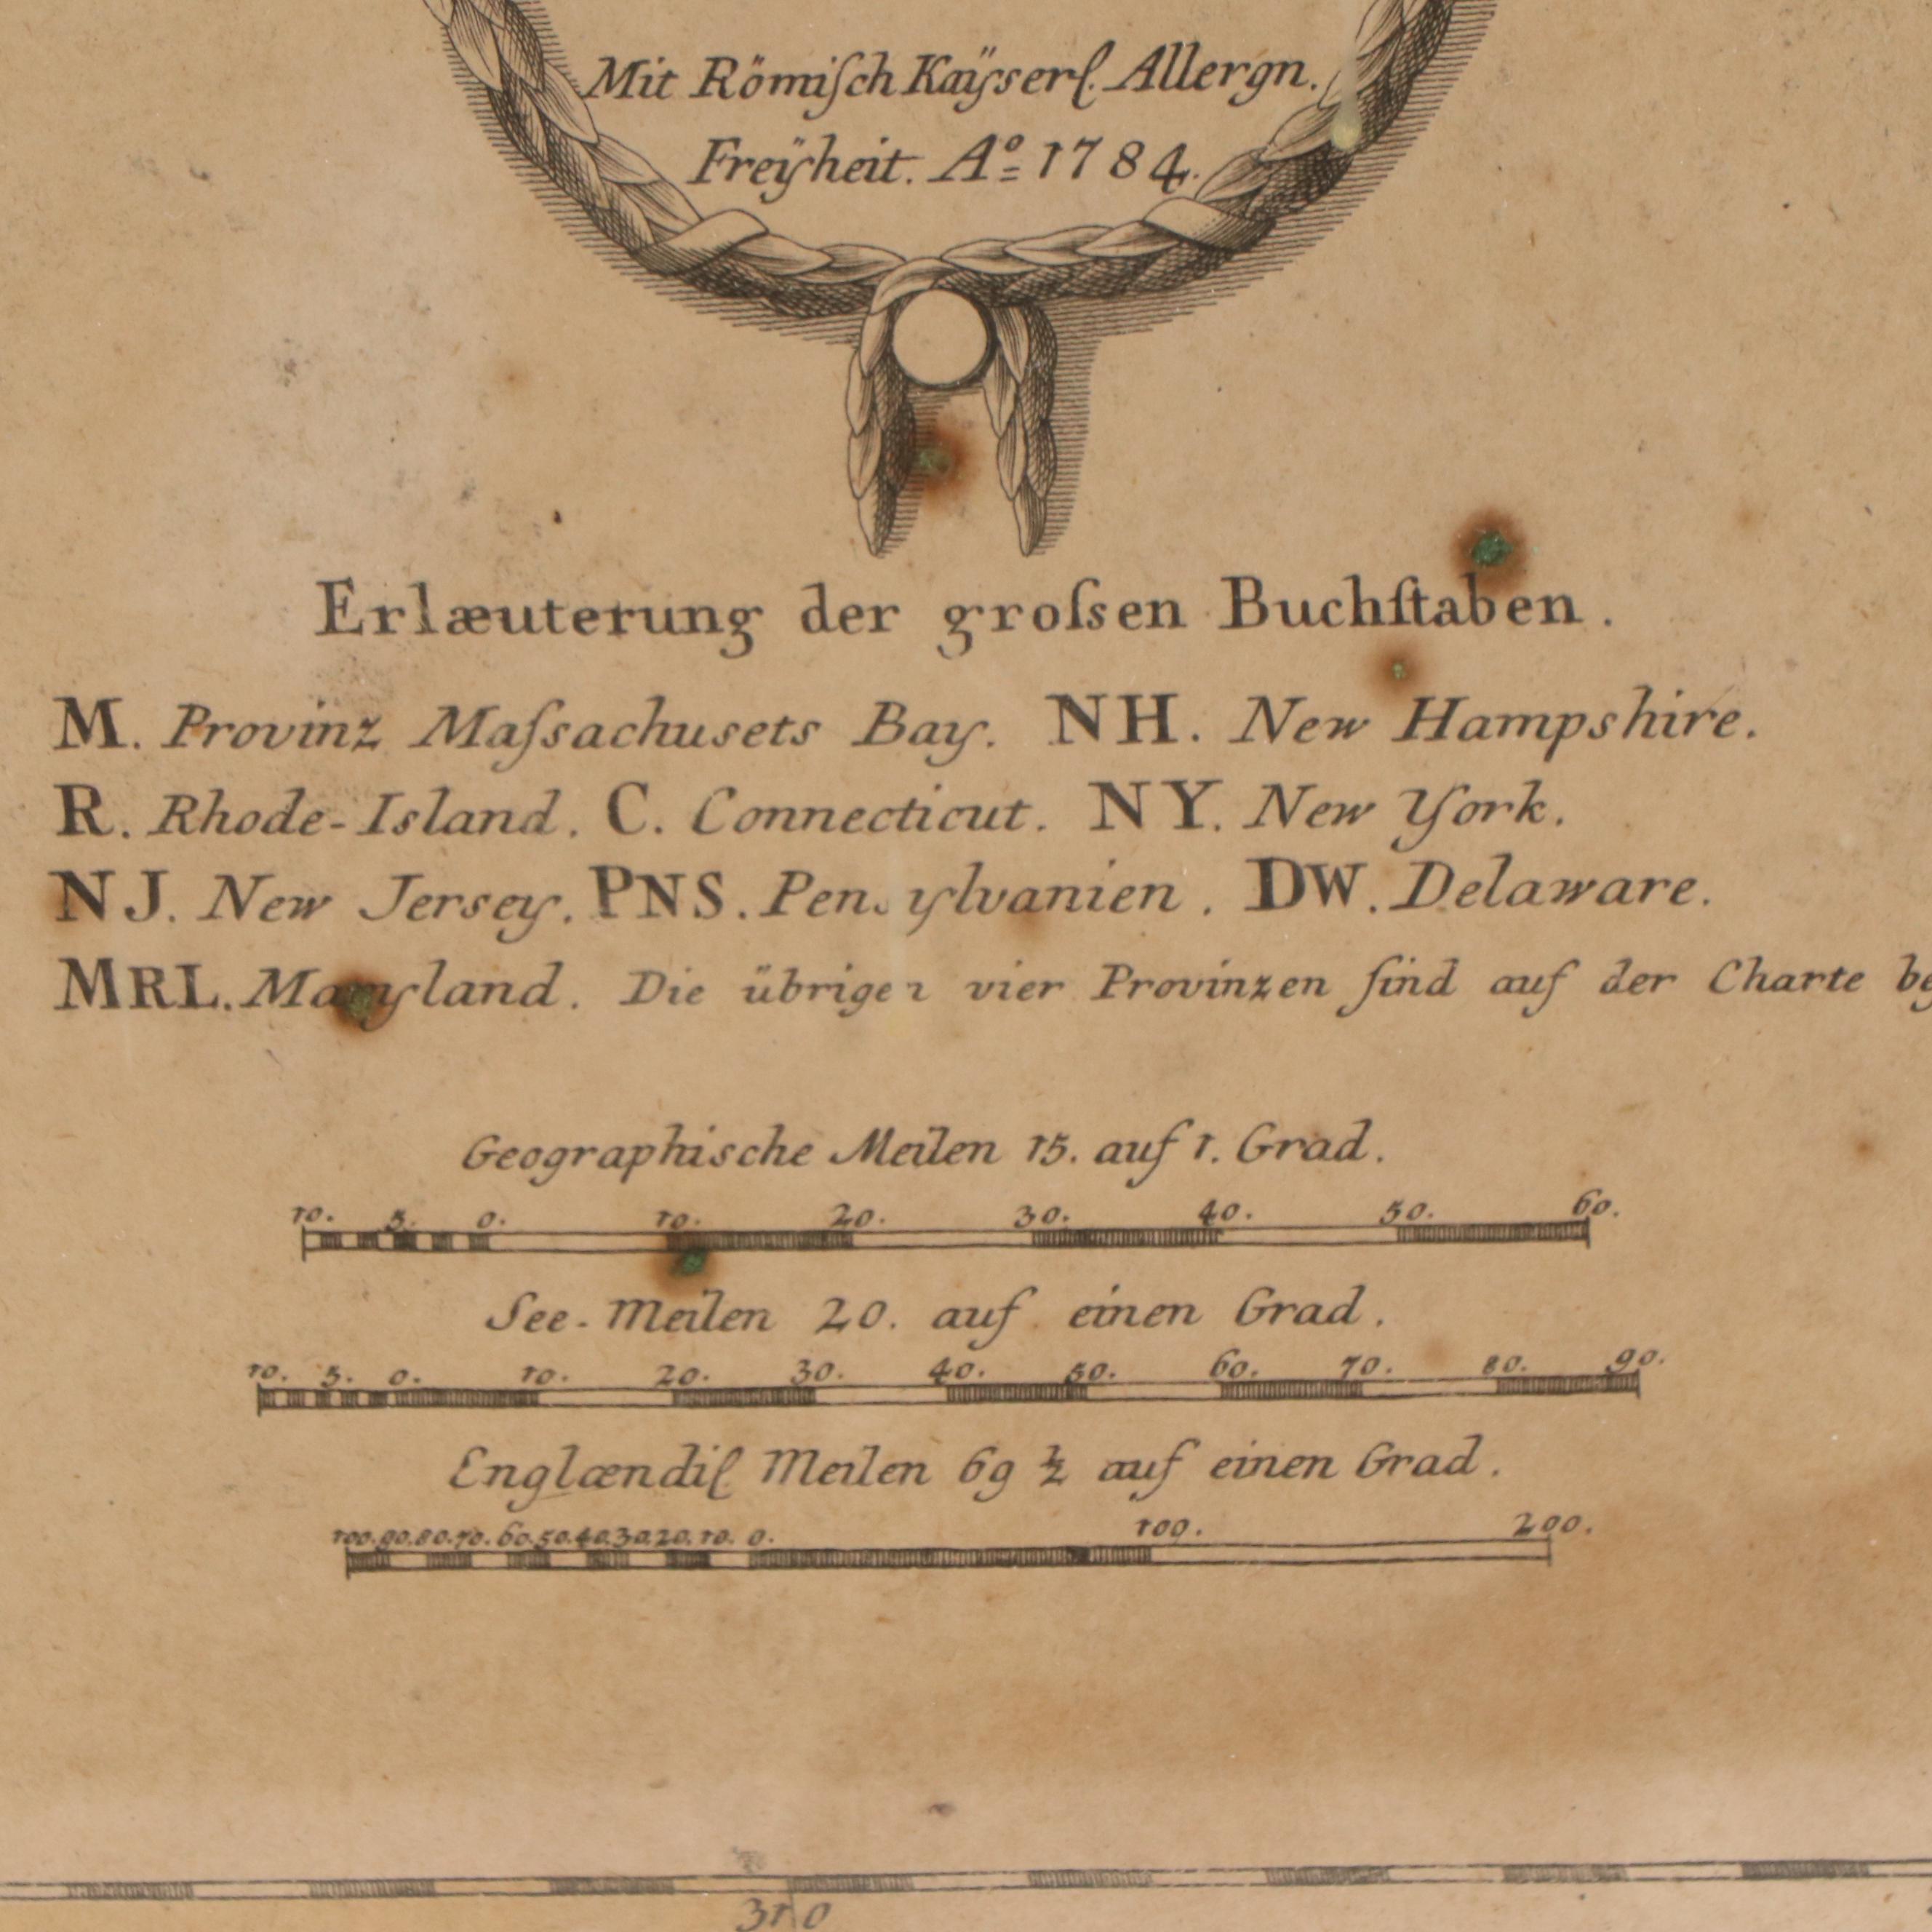 Mit Römiſch Kaÿserl. Allergn.
Freÿheit. Aº 1784.
Erlæuterung der groſsen Buchſtaben.
M. Provinz Maſsachusets Bay. NH. New Hampshire.
R. Rhode-Island. C. Connecticut. NY. New York.
NJ. New Jersey. PNS. Pensylvanien. DW. Delaware.
MRL. Maryland. Die übrigen vier Provinzen ſind auf der Charte
Geographische Meilen 15. auf 1. Grad.
10. 5. 0. 10. 20. 30. 40. 50. 60.
See-Meilen 20. auf einen Grad.
10. 5. 0. 10. 20. 30. 40. 50. 60. 70. 80. 90.
Englændiſ Meilen 69 ½ auf einen Grad.
100. 90. 80. 70. 60. 50. 40. 30. 20. 10. 0. 100. 200.
310